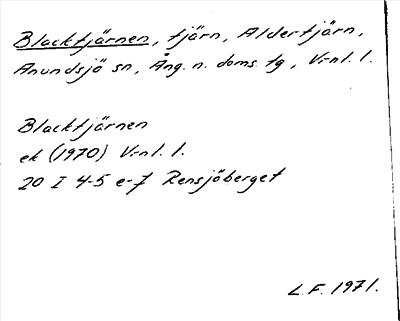 Blacktjärnen, tjärn, Aldertjärn,
Anundsjö sn, Ång. n. doms. tg, Vrnl. l.
Blacktjärnen
ek (1970) Vrnl. l.
20 I 4-5 e-f Rensjöberget
L.F. 1971.